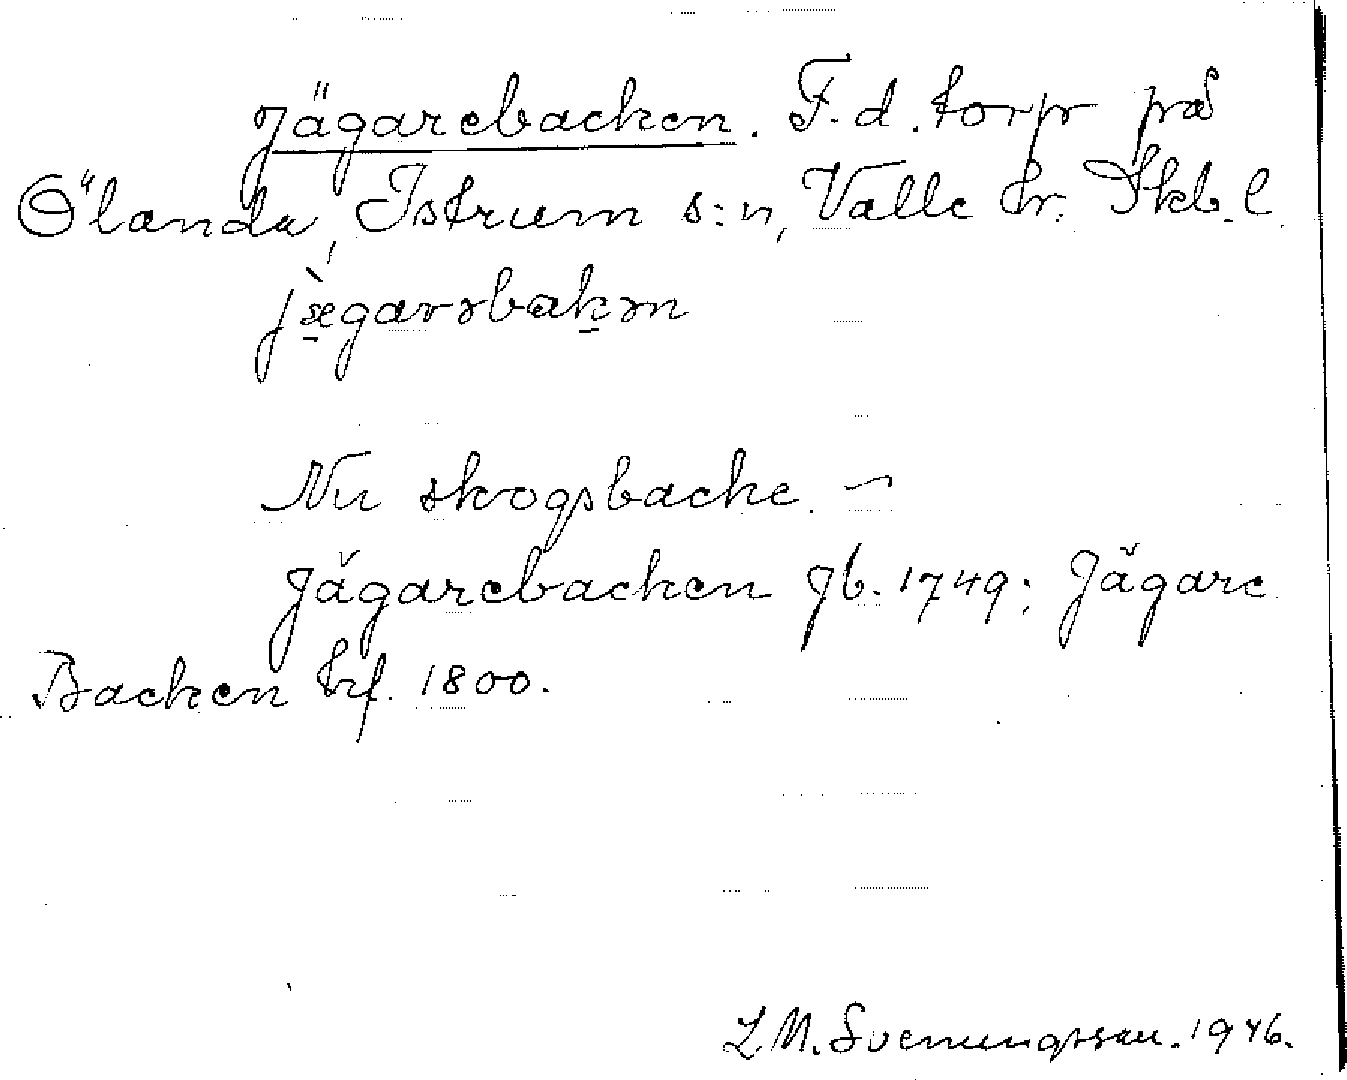 Jägarebacken. F.d. torp på
Ölanda, Istrum s:n, Valle hr. Skb. l.
jæ̀garəbakən
Nu skogsbacke. –
Jägarebacken jb. 1749; Jägare
Backen krf. 1800.
L M. Svenungsson. 1946.